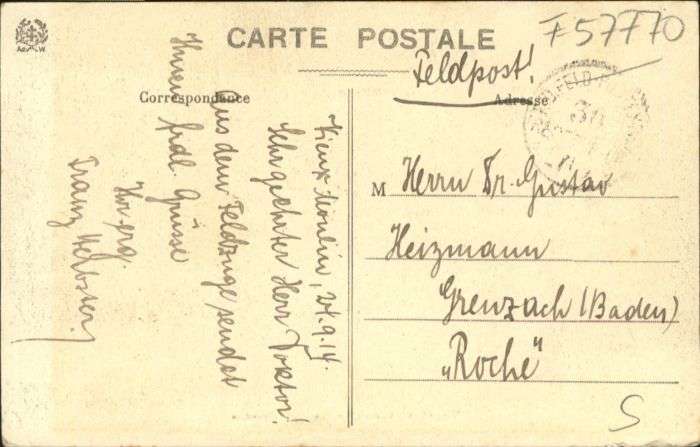 CARTE POSTALE
F57F70
Feldpost!
Correspondance
Adresse
Vieux Moulin, 21.9.14.
Sehr geehrter Herr Doktor!
Aus dem Feldzuge sendet
Ihnen frdl. Grüsse
Ihr erg.
Franz
M Herrn Dr. Gustav
Heizmann
Grenzach (Baden)
„Roche“
S